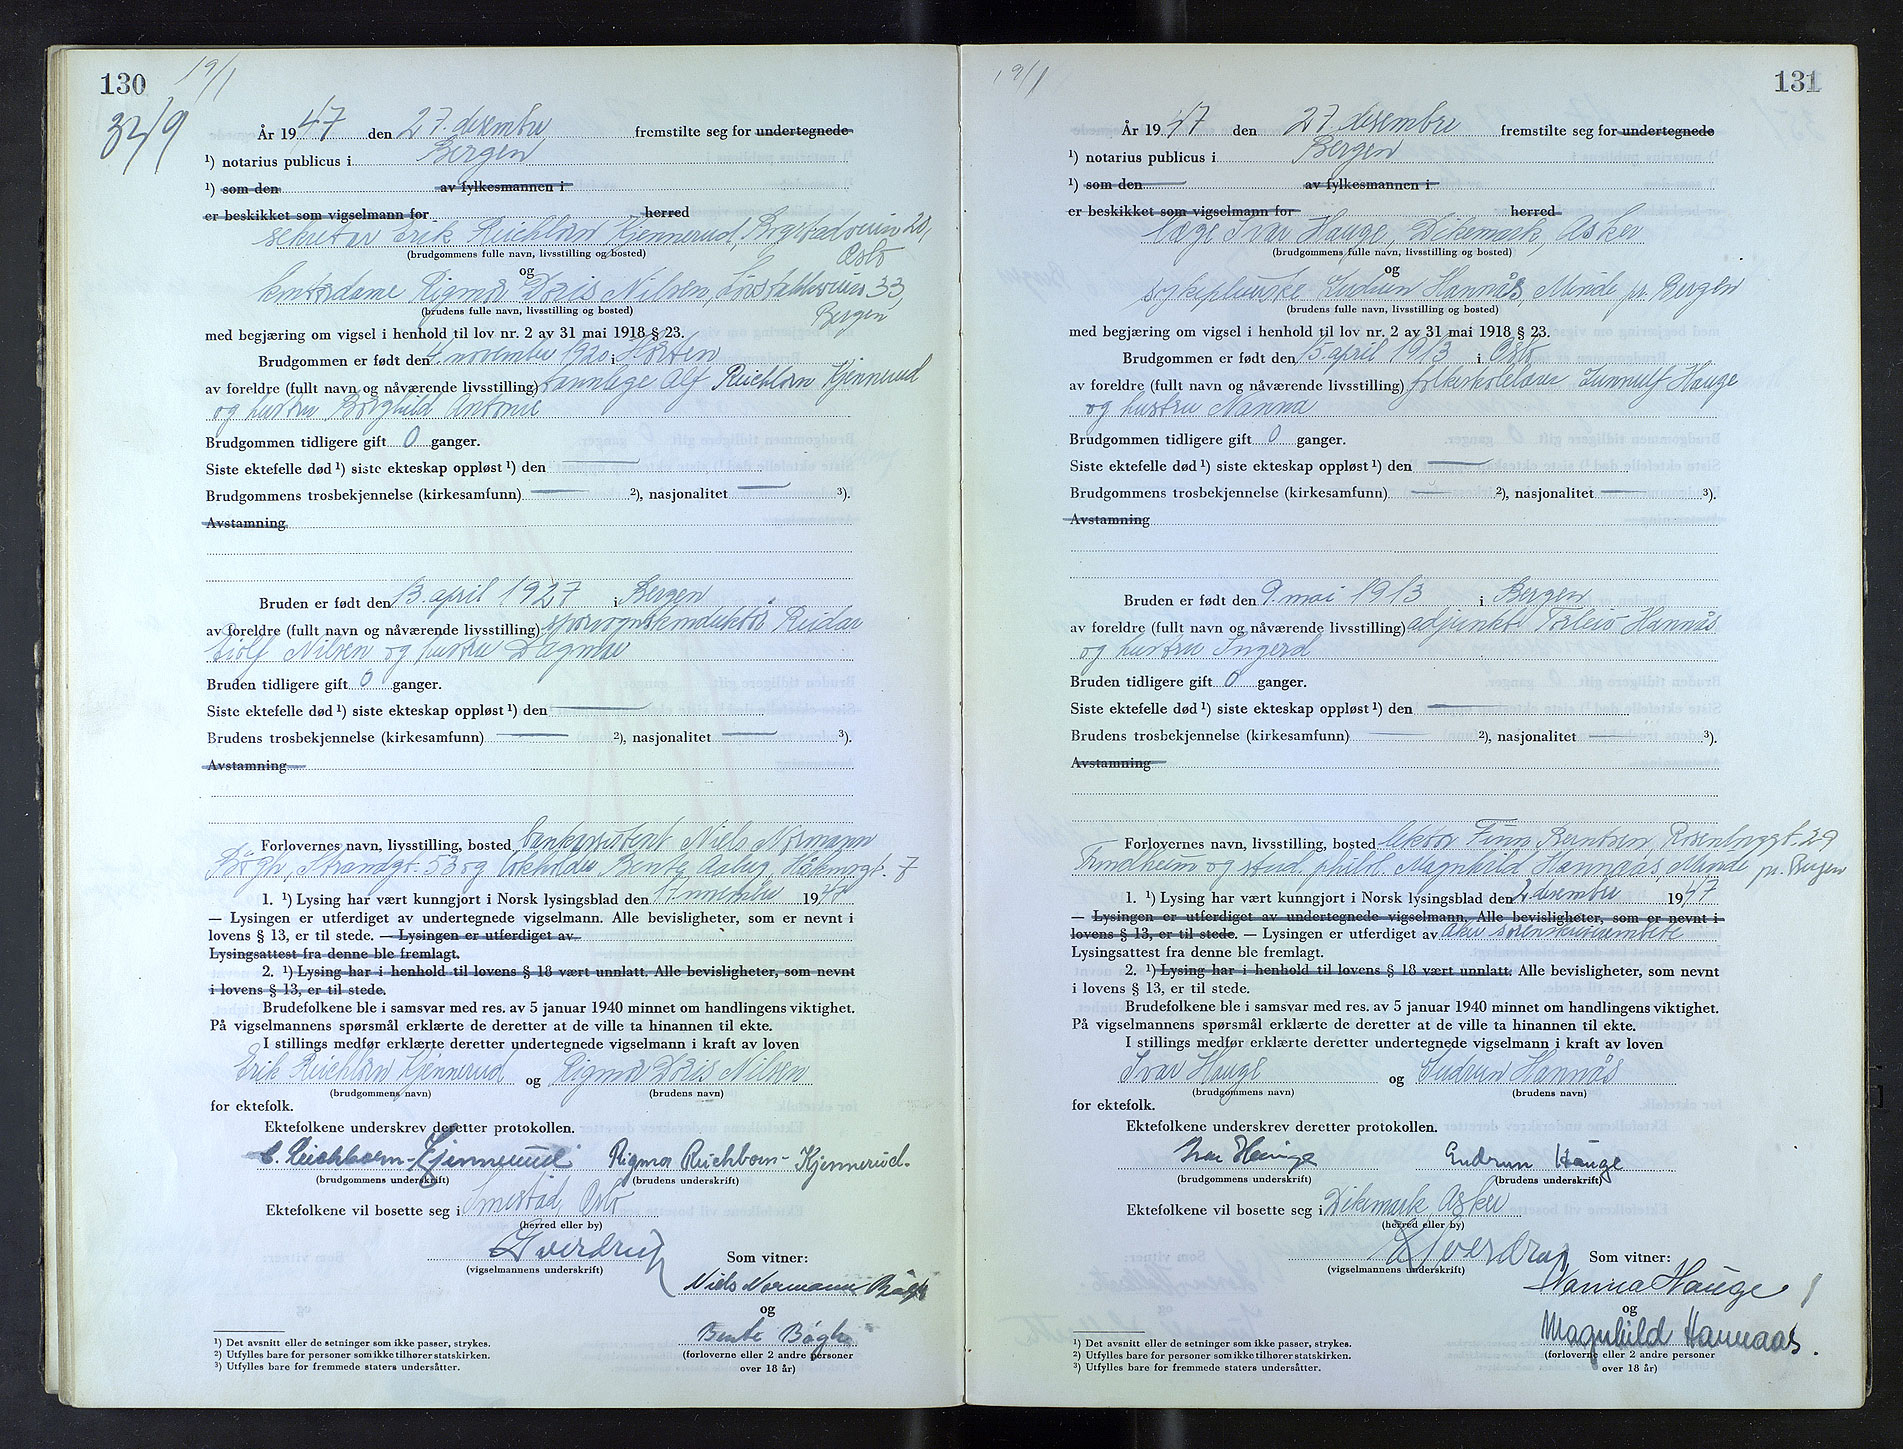 130
19/1
År 1947 den 27. desembre fremstilte seg for undertegnede
¹) notarius publicus i Bergen
¹) som den av fylkesmannen i
er beskikket som vigselmann for herred
sekretær Erik Reichborn Kjennerud, 20,
Oslo
(brudgommens fulle navn, livsstilling og bosted)
og
kontordame Rigmor Doris Nilsen, 33,
Bergen
(brudens fulle navn, livsstilling og bosted)
med begjæring om vigsel i henhold til lov nr. 2 av 31 mai 1918 § 23.
Brudgommen er født den 4. november 1920 i Horten
av foreldre (fullt navn og nåværende livsstilling) tannlege Alf Reichborn Kjennerud
og hustru Borghild Antonie
Brudgommen tidligere gift 0 ganger.
Siste ektefelle død ¹) siste ekteskap oppløst ¹) den
Brudgommens trosbekjennelse (kirkesamfunn) ²), nasjonalitet ³).
Avstamning
Bruden er født den 13. april 1927 i Bergen
av foreldre (fullt navn og nåværende livsstilling) sporvognskonduktør Reidar
Nilsen og hustru Dagmar
Bruden tidligere gift 0 ganger.
Siste ektefelle død ¹) siste ekteskap oppløst ¹) den
Brudens trosbekjennelse (kirkesamfunn) ²), nasjonalitet ³).
Avstamning
Forlovernes navn, livsstilling, bosted bankassistent Niels Normann
Bøgh, Strandgt. 53 og Bente Aaberg, Håkonsgt. 7
1. ¹) Lysing har vært kunngjort i Norsk lysingsblad den november 19
— Lysingen er utferdiget av undertegnede vigselmann. Alle bevisligheter, som er nevnt i
lovens § 13, er til stede. — Lysingen er utferdiget av
Lysingsattest fra denne ble fremlagt.
2. ¹) Lysing har i henhold til lovens § 18 vært unnlatt. Alle bevisligheter, som nevnt
i lovens § 13, er til stede.
Brudefolkene ble i samsvar med res. av 5 januar 1940 minnet om handlingens viktighet.
På vigselmannens spørsmål erklærte de deretter at de ville ta hinannen til ekte.
I stillings medfør erklærte deretter undertegnede vigselmann i kraft av loven
Erik Reichborn Kjennerud og Rigmor Doris Nilsen
(brudgommens navn) (brudens navn)
for ektefolk.
Ektefolkene underskrev deretter protokollen.
E. Reichborn-Kjennerud Rigmor Reichborn-Kjennerud.
(brudgommens underskrift) (brudens underskrift)
Ektefolkene vil bosette seg i Smestad, Oslo
(herred eller by)
Sverdrup Som vitner:
(vigselmannens underskrift)
Niels Normann Bøgh
og
Bente Bøgh
(forloverne eller 2 andre personer
over 18 år)
¹) Det avsnitt eller de setninger som ikke passer, strykes.
²) Utfylles bare for personer som ikke tilhører statskirken.
³) Utfylles bare for fremmede staters undersåtter.
131
19/1
År 1947 den 27. desembre fremstilte seg for undertegnede
¹) notarius publicus i Bergen
¹) som den av fylkesmannen i
er beskikket som vigselmann for herred
læge Ivar Hauge, Dikemark, Asker
(brudgommens fulle navn, livsstilling og bosted)
og
sykepleierske Gudrun Hannås Minde pr. Bergen
(brudens fulle navn, livsstilling og bosted)
med begjæring om vigsel i henhold til lov nr. 2 av 31 mai 1918 § 23.
Brudgommen er født den 15. april 1913 i Oslo
av foreldre (fullt navn og nåværende livsstilling) folkeskolelærer Gunnulf Hauge
og hustru Nanna
Brudgommen tidligere gift 0 ganger.
Siste ektefelle død ¹) siste ekteskap oppløst ¹) den
Brudgommens trosbekjennelse (kirkesamfunn) ²), nasjonalitet ³).
Avstamning
Bruden er født den 9. mai 1913 i Bergen
av foreldre (fullt navn og nåværende livsstilling) adjunkt Torleiv Hannås
og hustru Ingerd
Bruden tidligere gift 0 ganger.
Siste ektefelle død ¹) siste ekteskap oppløst ¹) den
Brudens trosbekjennelse (kirkesamfunn) ²), nasjonalitet ³).
Avstamning
Forlovernes navn, livsstilling, bosted lektor Finn Berntsen, Rosenborggt. 29
Trondheim og stud. philol. Magnhild Hannaas, Minde pr. Bergen
1. ¹) Lysing har vært kunngjort i Norsk lysingsblad den 2 desembre 1947
— Lysingen er utferdiget av undertegnede vigselmann. Alle bevisligheter, som er nevnt i
lovens § 13, er til stede. — Lysingen er utferdiget av Aker sorenskriverembete
Lysingsattest fra denne ble fremlagt.
2. ¹) Lysing har i henhold til lovens § 18 vært unnlatt. Alle bevisligheter, som nevnt
i lovens § 13, er til stede.
Brudefolkene ble i samsvar med res. av 5 januar 1940 minnet om handlingens viktighet.
På vigselmannens spørsmål erklærte de deretter at de ville ta hinannen til ekte.
I stillings medfør erklærte deretter undertegnede vigselmann i kraft av loven
Ivar Hauge og Gudrun Hannås
(brudgommens navn) (brudens navn)
for ektefolk.
Ektefolkene underskrev deretter protokollen.
Ivar Hauge Gudrun Hauge
(brudgommens underskrift) (brudens underskrift)
Ektefolkene vil bosette seg i Dikemark, Asker
(herred eller by)
Sverdrup Som vitner:
(vigselmannens underskrift)
Nanna Hauge
og
Magnhild Hannaas.
(forloverne eller 2 andre personer
over 18 år)
¹) Det avsnitt eller de setninger som ikke passer, strykes.
²) Utfylles bare for personer som ikke tilhører statskirken.
³) Utfylles bare for fremmede staters undersåtter.